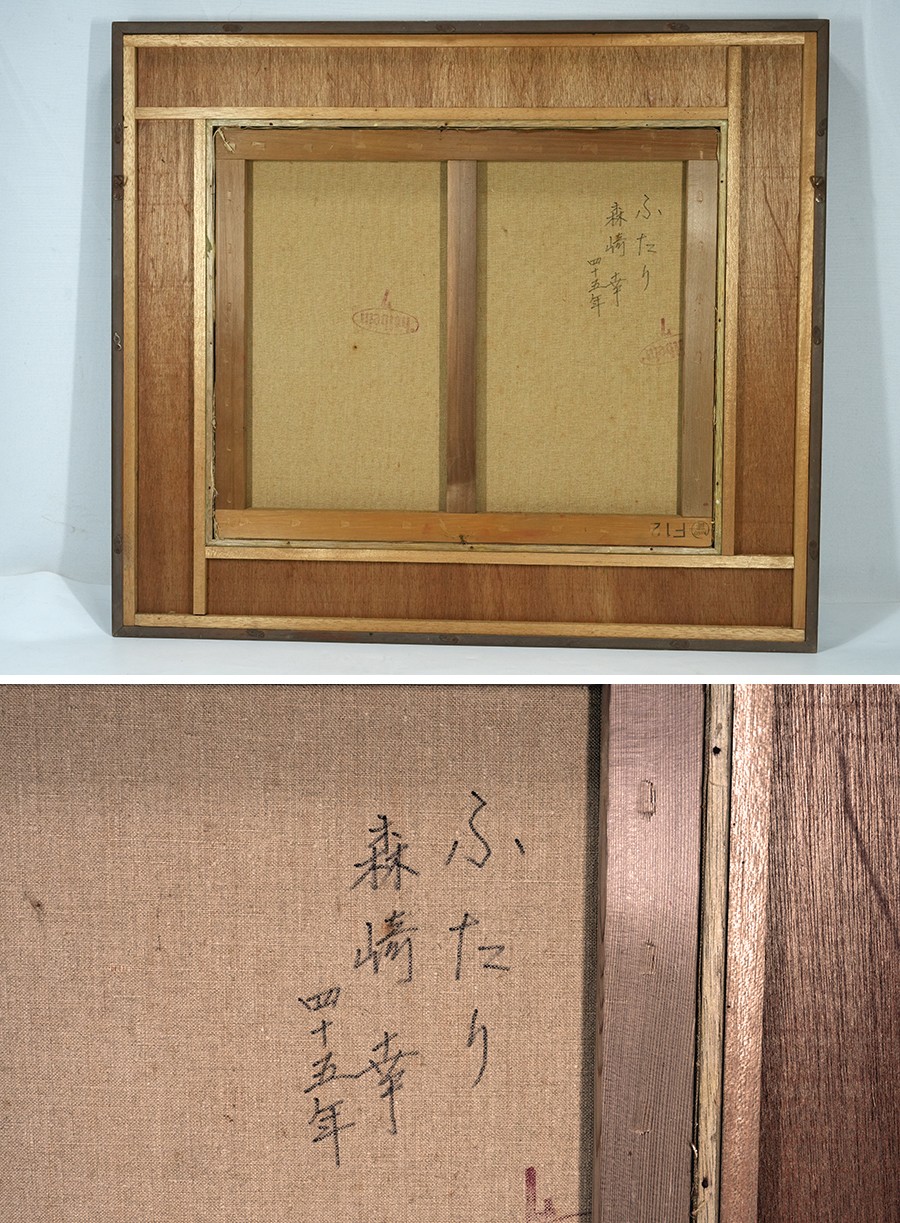 ふたり
森崎 幸
四十五年
F12
ふたり
森崎 幸
四十五年